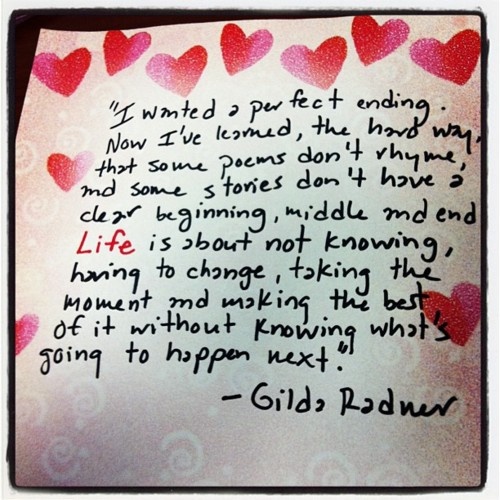 "I wanted a perfect ending.
Now I've learned, the hard way,
that some poems don't rhyme,
and some stories don't have a
clear beginning, middle and end
Life is about not knowing,
having to change, taking the
moment and making the best
of it without knowing what's
going to happen next."
- Gilda Radner